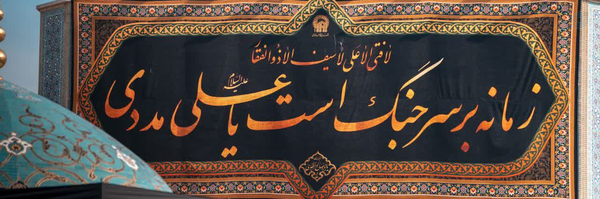 لا فتی الا علی لا سیف الا ذوالفقار
زمانه بر سر جنگ است یا علی علیه‌السلام مددی